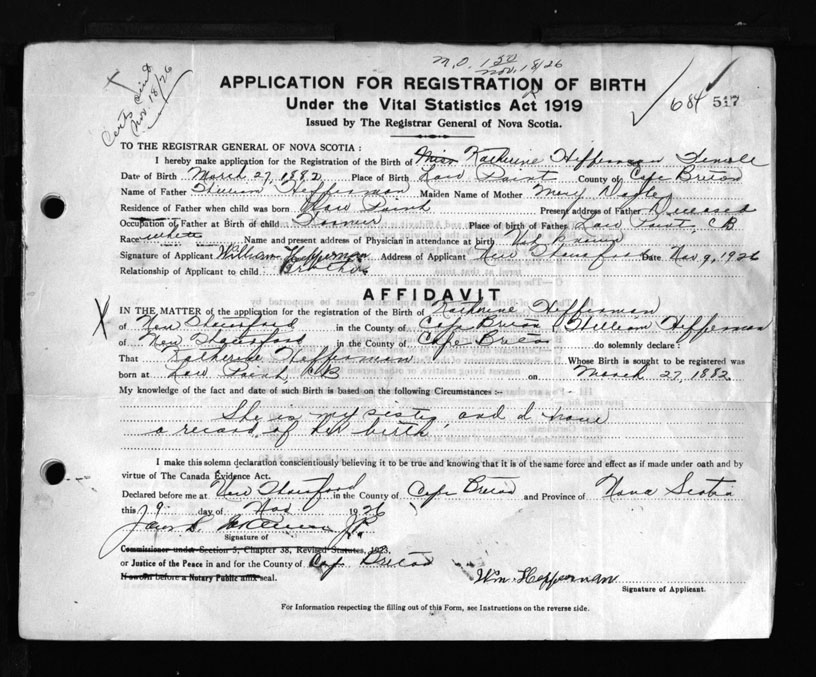 M.O. 1.50
Nov. 18/26
Certs sent
Nov. 18/26
APPLICATION FOR REGISTRATION OF BIRTH
Under the Vital Statistics Act 1919
Issued by The Registrar General of Nova Scotia.
684 517
TO THE REGISTRAR GENERAL OF NOVA SCOTIA:
I hereby make application for the Registration of the Birth of Miss Katherine Heffernan
Date of Birth March 27, 1882 Place of Birth Low Point County of Cape Breton
Name of Father William Heffernan Maiden Name of Mother Mary
Residence of Father when child was born Low Point Present address of Father Deceased
Occupation of Father at Birth of child Farmer Place of birth of Father Low Point, CB
Race White Name and present address of Physician in attendance at birth Not Known
Signature of Applicant William Heffernan Address of Applicant New Date Nov 9, 1926
Relationship of Applicant to child Brother
AFFIDAVIT
IN THE MATTER of the application for the registration of the Birth of Katherine Heffernan
of New in the County of Cape Breton I William Heffernan
of New in the County of Cape Breton do solemnly declare:
That Katherine Heffernan Whose Birth is sought to be registered was
born at Low Point, CB on March 27, 1882
My knowledge of the fact and date of such Birth is based on the following Circumstances:—
She is my sister, and I have
a record of her birth
I make this solemn declaration conscientiously believing it to be true and knowing that it is of the same force and effect as if made under oath and by
virtue of The Canada Evidence Act.
Declared before me at New in the County of Cape Breton and Province of Nova Scotia
this 9 day of Nov 1926
J.P.
Signature of
Commissioner under Section 5, Chapter 38, Revised Statutes, 1923,
or Justice of the Peace in and for the County of Cape Breton
If sworn before a Notary Public affix seal.
Wm. Heffernan
Signature of Applicant.
For Information respecting the filling out of this Form, see Instructions on the reverse side.